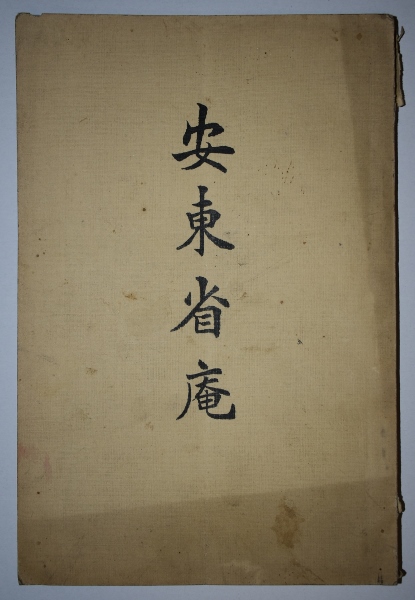 安東省庵